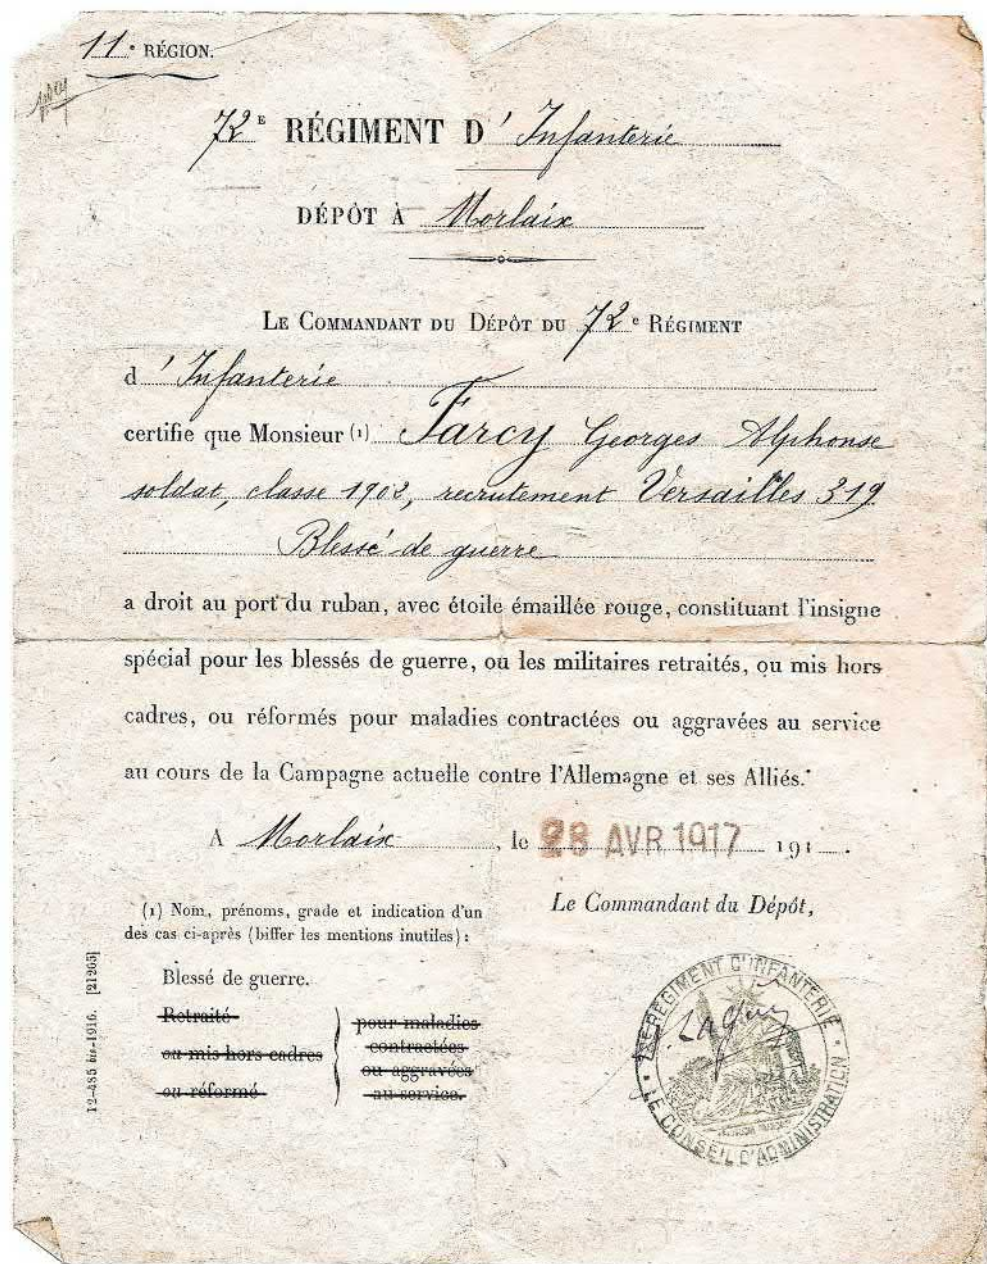 11e RÉGION.
72E RÉGIMENT D'Infanterie
DÉPÔT À Morlaix
LE COMMANDANT DU DÉPÔT DU 72e RÉGIMENT
d'Infanterie
certifie que Monsieur (1) Farcy Georges Alphonse
soldat, classe 1902, recrutement Versailles 319
Blessé de guerre
a droit au port du ruban, avec étoile émaillée rouge, constituant l'insigne
spécial pour les blessés de guerre, ou les militaires retraités, ou mis hors
cadres, ou réformés pour maladies contractées ou aggravées au service
au cours de la Campagne actuelle contre l'Allemagne et ses Alliés.
A Morlaix, le 28 AVR 1917 191 .
Le Commandant du Dépôt,
(1) Nom, prénoms, grade et indication d'un
des cas ci-après (biffer les mentions inutiles) :
Blessé de guerre.
Retraité
ou mis hors cadres
ou réformé
pour maladies
contractées
ou aggravées
au service.
12-485 bis-1916. [21265]
72E REGIMENT D'INFANTERIE
LE CONSEIL D'ADMINISTRATION